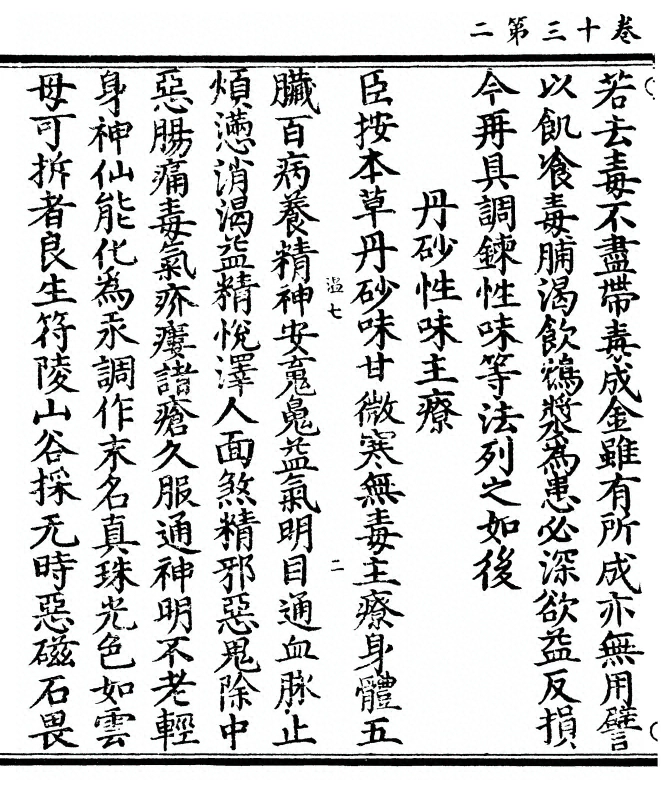 二第三十卷
若去毒不盡帶毒成金雖有所成亦無用譬
以飢飡毒脯渴飲鴆漿為患必深欲益反損
今再具調鍊性味等法列之如後
丹砂性味主療
溫七
二
臣按本草丹砂味甘微寒無毒主療身體五
臟百病養精神安䰟魄益氣明目通血脉止
煩懣消渴益精悅澤人面煞精邪惡鬼除中
惡腸痛毒氣疥瘻諸瘡久服通神明不老輕
身神仙能化為汞調作末名真珠光色如雲
母可拆者良生符陵山谷採无時惡磁石畏